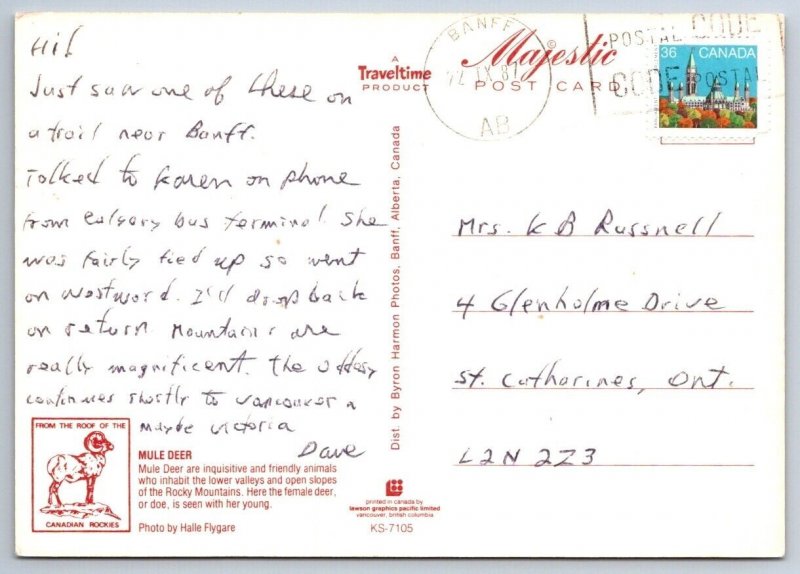 Hi!
Just saw one of these on
a trail near Banff.
Talked to Karen on phone
from Calgary bus terminal. She
was fairly tied up so went
on westward. I'll drop back
on return. Mountains are
really magnificent. The oddesy
continues shortly to Vancouver &
maybe Victoria
Dave
FROM THE ROOF OF THE
CANADIAN ROCKIES
MULE DEER
Mule Deer are inquisitive and friendly animals
who inhabit the lower valleys and open slopes
of the Rocky Mountains. Here the female deer,
or doe, is seen with her young.
Photo by Halle Flygare
A
Traveltime
PRODUCT
Dist. by Byron Harmon Photos, Banff, Alberta, Canada
printed in canada by
lawson graphics pacific limited
vancouver, british columbia
KS-7105
Majestic
POST CARD
BANFF
IX 87
AB
POSTAL CODE
CODE POSTAL
36 CANADA
Mrs. K B Russnell
4 Glenholme Drive
St. Catharines, Ont.
L2N 2Z3